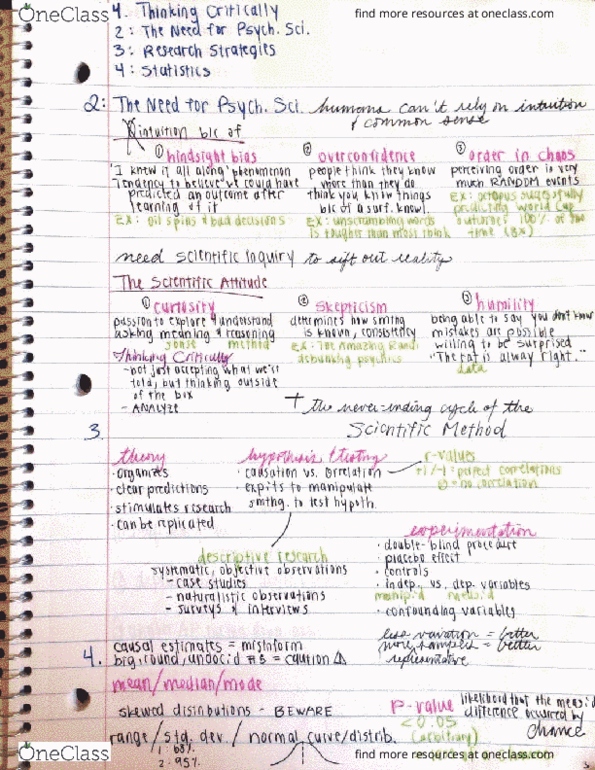 OneClass
find more resources at oneclass.com
4. Thinking Critically
2: The Need for Psych. Sci.
3: Research Strategies
4: Statistics
2: The Need for Psych. Sci. humans can't rely on intuition
& common sense
intuition b/c of
① hindsight bias
② overconfidence
③ order in chaos
"I knew it all along" phenomenon
tendency to believe we could have
predicted an outcome after
learning of it
EX: oil spills & bad decisions
people think they know
more than they do
think you know things
b/c of a surf. knowl
EX: unscrambling words
is tougher than most think
perceiving order in very
much RANDOM events
EX: octopus successfully
predicting World Cup
outcomes 100% of the
time (8x)
need scientific inquiry to sift out reality
The Scientific Attitude
① curiosity
② skepticism
③ humility
passion to explore & understand
asking meaning & reasoning
method
Thinking Critically
- not just accepting what we're
told, but thinking outside
of the box
- ANALYZE
determines how smthng
is known, consistency
EX: The Amazing Randi
debunking psychics
being able to say you don't know
mistakes are possible
willing to be surprised
"The rat is alway right."
data
+ the never-ending cycle of the
Scientific Method
3.
theory
· organizes
· clear predictions
· stimulates research
· can be replicated
hypothesis testing
· causation vs. correlation
· expits to manipulate
smthg. to test hypoth.
r-values
+1/-1 = perfect correlations
0 = no correlation
descriptive research
systematic, objective observations
- case studies
- naturalistic observations
- surveys & interviews
experimentation
· double-blind procedure
· placebo effect
· controls
· indep. vs. dep. variables
manip.d meas.d
· confounding variables
less variation = better
more samples = better
representative
4.
causal estimates = misinform
big, round/undoc'd #s = caution ⚠
mean/median/mode
skewed distributions - BEWARE
range/std. dev./normal curve/distrib.
1: 68%
2: 95%
P-value
< 0.05
(arbitrary)
likelihood that the meas.d
difference occurred by
chance
OneClass
find more resources at oneclass.com